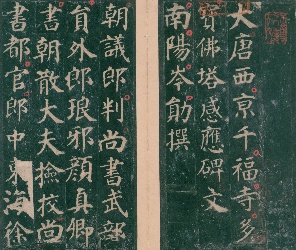 大唐西京千福寺多
寳佛塔感應碑文
南陽岑勛撰
朝議郎判尚書武部
負外郎琅邪顏真卿
書朝散大夫撿挍尚
書都官郎中東海徐